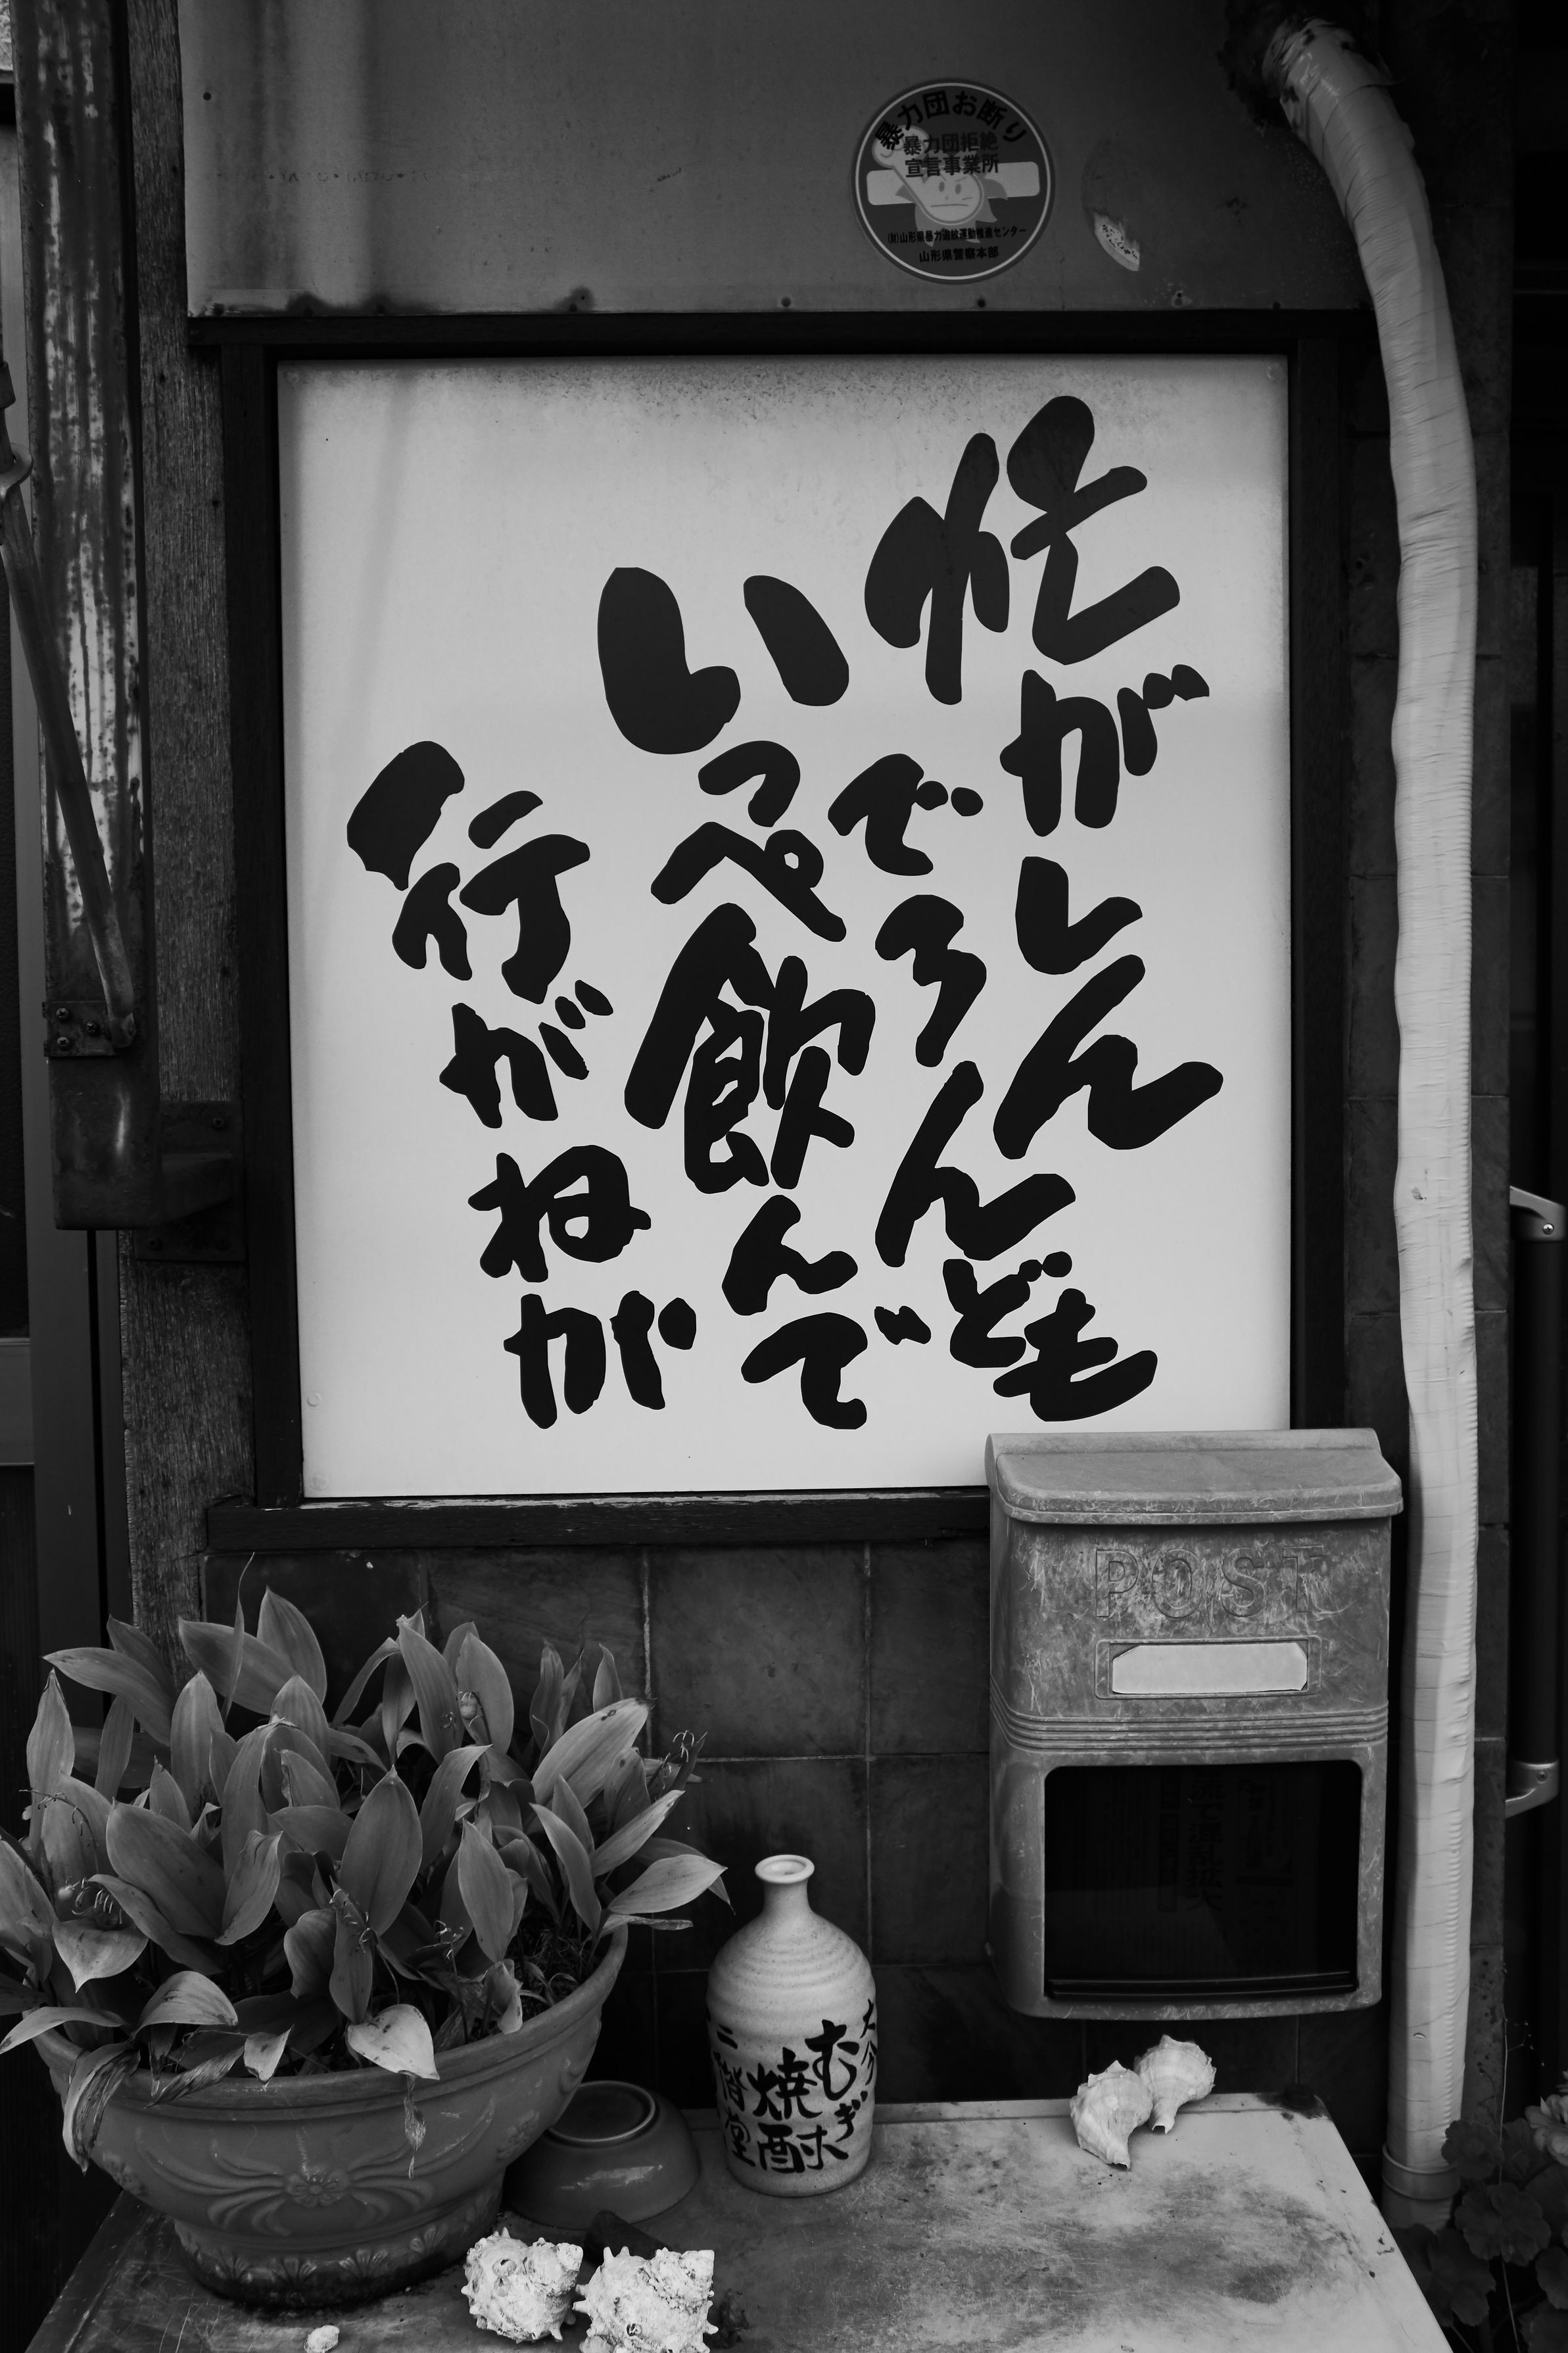 暴力団お断り
暴力団拒絶
宣言事業所
(財)山形県暴力追放運動推進センター
山形県警察本部
忙がしんん
でろんども
いっぺ飲んで
行がねが
POST
大分
むぎ
焼酎
二階堂